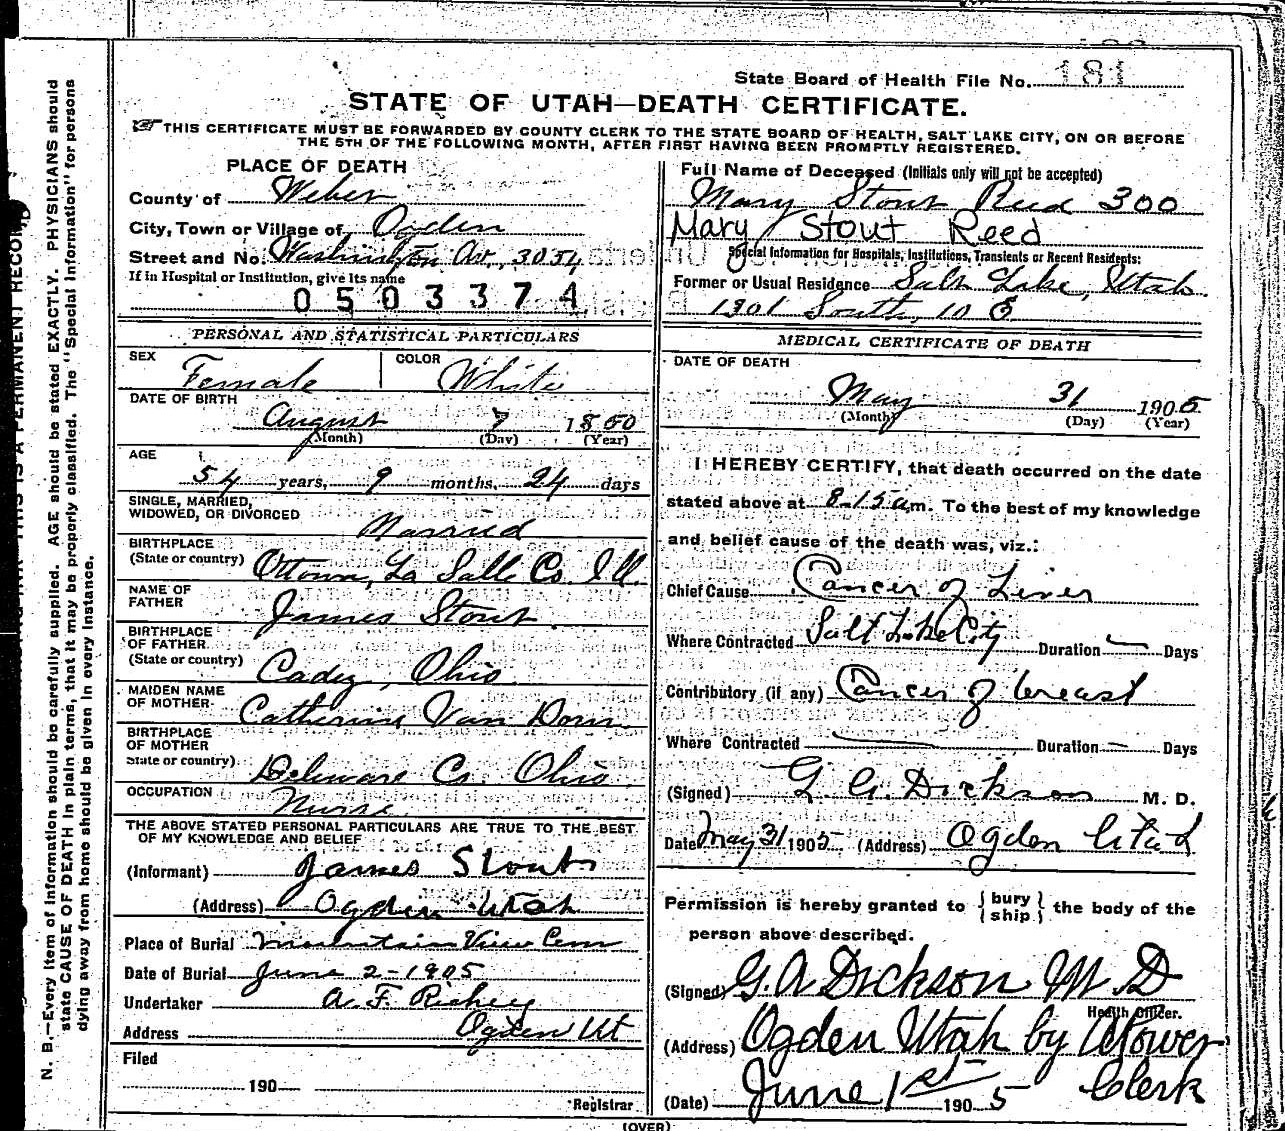 State Board of Health File No. 181
STATE OF UTAH—DEATH CERTIFICATE.
THIS CERTIFICATE MUST BE FORWARDED BY COUNTY CLERK TO THE STATE BOARD OF HEALTH, SALT LAKE CITY, ON OR BEFORE
THE 5TH OF THE FOLLOWING MONTH, AFTER FIRST HAVING BEEN PROMPTLY REGISTERED.
PLACE OF DEATH
County of Weber
City, Town or Village of Ogden
Street and No. Washington Av., 3054
If in Hospital or Institution, give its name
0503374
Full Name of Deceased (Initials only will not be accepted)
Mary Stout Reed 300
Mary Stout Reed
Special Information for Hospitals, Institutions, Transients or Recent Residents:
Former or Usual Residence Salt Lake, Utah.
1301 South, 10 E
PERSONAL AND STATISTICAL PARTICULARS
SEX Female COLOR White
DATE OF BIRTH
August 7 1850
(Month) (Day) (Year)
AGE
54 years, 9 months, 24 days
SINGLE, MARRIED,
WIDOWED, OR DIVORCED Married
BIRTHPLACE
(State or country) Ottowa, La Salle Co. Ill.
NAME OF
FATHER James Stout
BIRTHPLACE
OF FATHER
(State or country) Cadiz, Ohio
MAIDEN NAME
OF MOTHER Catherine Van Dorn
BIRTHPLACE
OF MOTHER
State or country) Deleware Co. Ohio
OCCUPATION Nurse
THE ABOVE STATED PERSONAL PARTICULARS ARE TRUE TO THE BEST
OF MY KNOWLEDGE AND BELIEF
(Informant) James Stout
(Address) Ogden Utah
Place of Burial Mountain View Cem
Date of Burial June 2-1905
Undertaker A. F. Richey
Address Ogden Ut
Filed
190
Registrar
MEDICAL CERTIFICATE OF DEATH
DATE OF DEATH
May 31 1905
(Month) (Day) (Year)
I HEREBY CERTIFY, that death occurred on the date
stated above at 8-15 am. To the best of my knowledge
and belief cause of the death was, viz.:
Chief Cause Cancer of Liver
Where Contracted Salt Lake City Duration — Days
Contributory (if any) Cancer of breast
Where Contracted — Duration — Days
(Signed) G. A. Dickson M. D.
Date May 31 1905 (Address) Ogden Utah
Permission is hereby granted to {bury
ship} the body of the
person above described.
(Signed) G. A Dickson M. D
Health Officer.
(Address) Ogden Utah by
Clerk
(Date) June 1st 1905
(OVER)
N. B.—Every item of information should be carefully supplied. AGE should be stated EXACTLY. PHYSICIANS should
state CAUSE OF DEATH in plain terms, that it may be properly classified. The "Special Information" for persons
dying away from home should be given in every instance.
THIS IS A PERMANENT RECORD